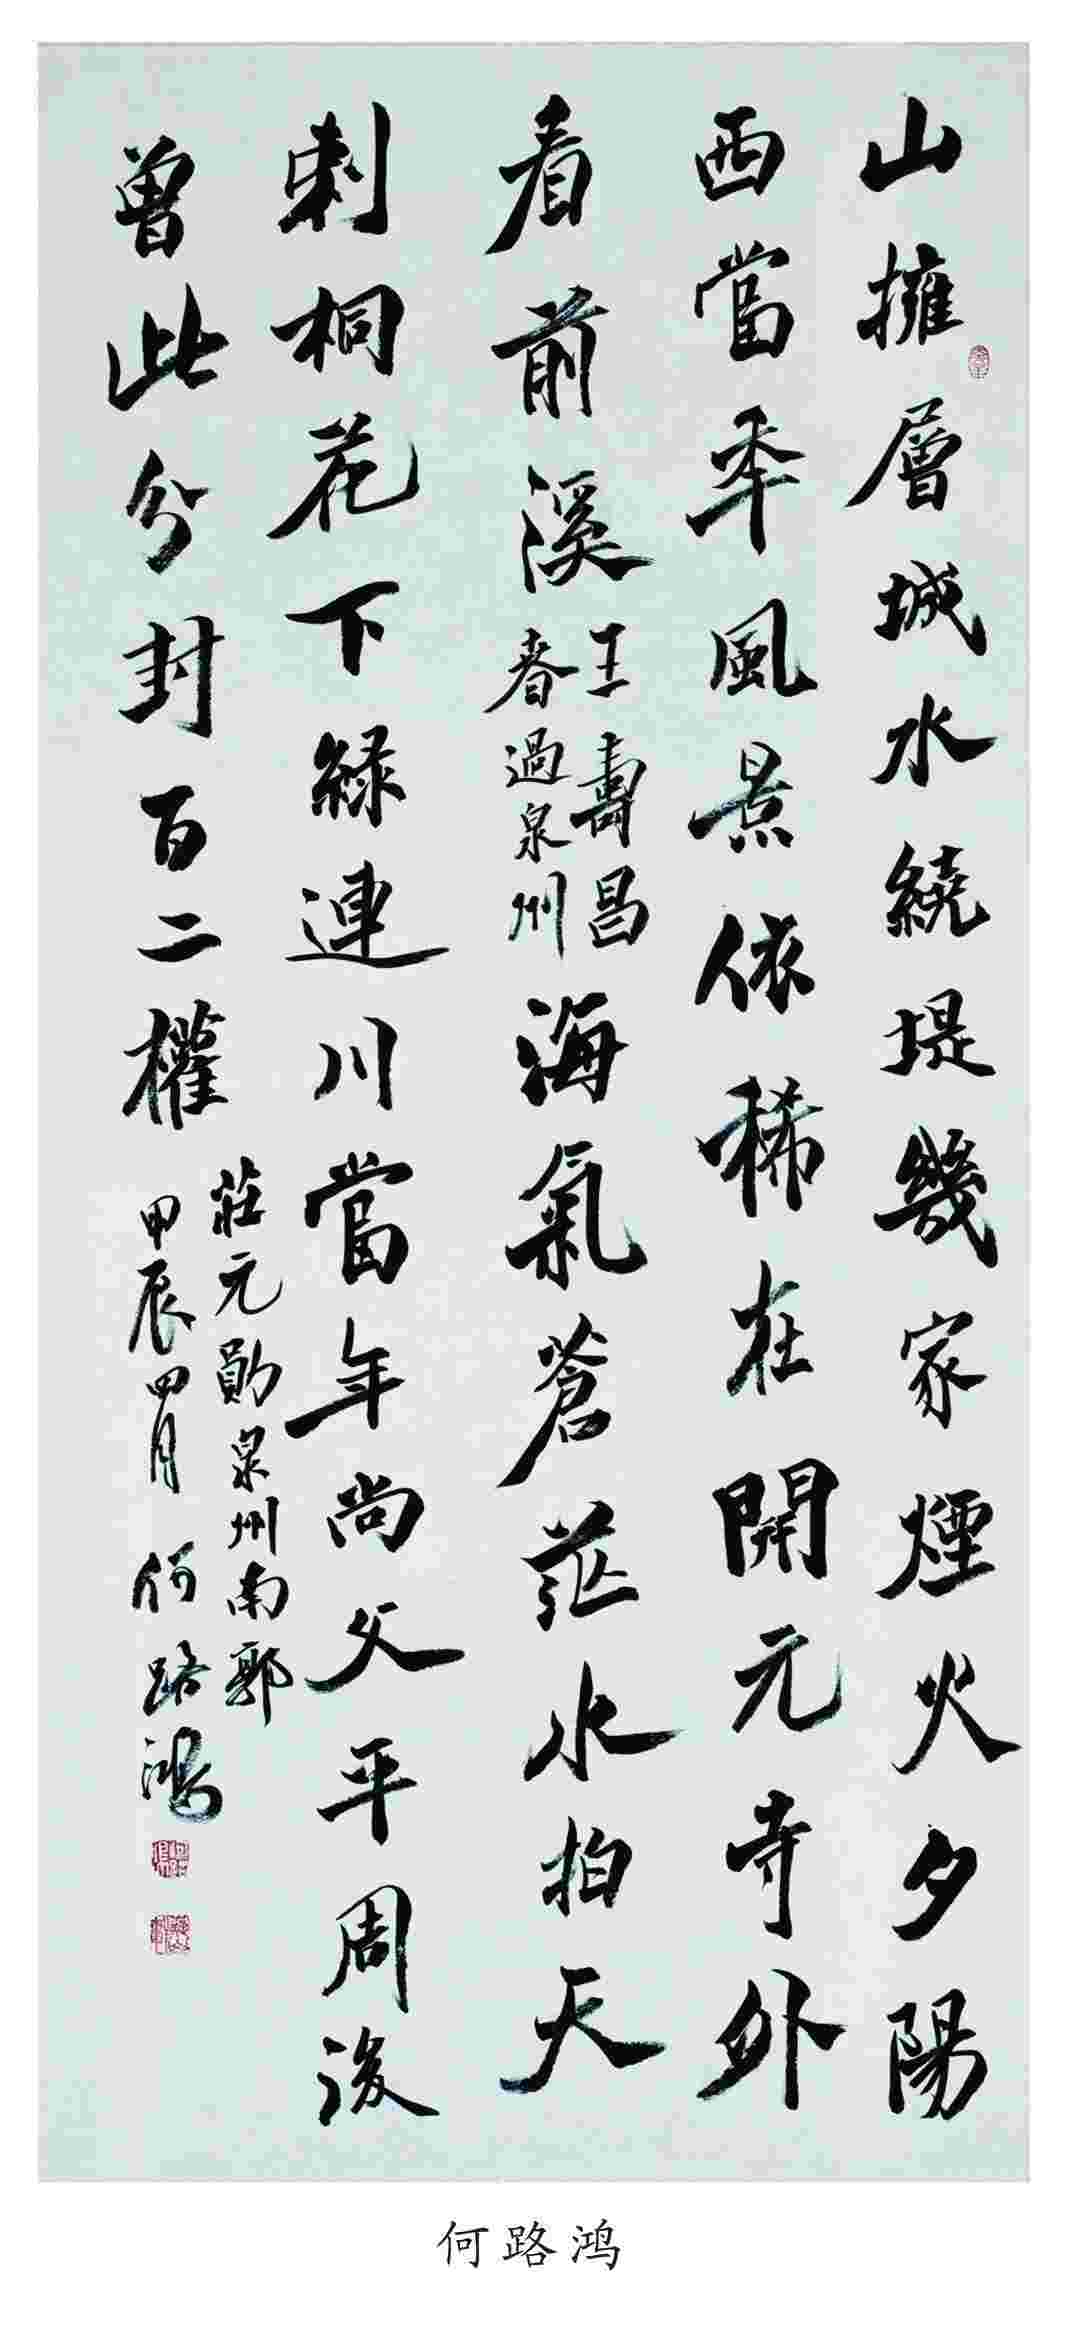 山擁層城水繞堤幾家煙火夕陽
西當年風景依稀在開元寺外
看前溪
王壽昌
春過泉州
海氣蒼茫水拍天
刺桐花下綠連川當年尚父平周後
曾此分封百二權
莊元勛泉州南郭
甲辰四月何路鴻
何路鸿